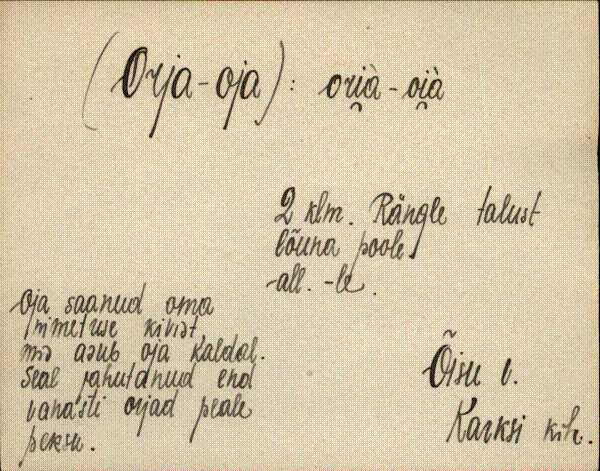 (Orja-oja): ori̯à-oi̯à
2 klm. Rängle talust
lõuna poole.
-all. -le.
Oja saanud oma
nimetuse kivist
mis asub oja kaldal.
Seal jahutanud end
vanasti orjad peale
peksu.
Õisu v.
Karksi kih.